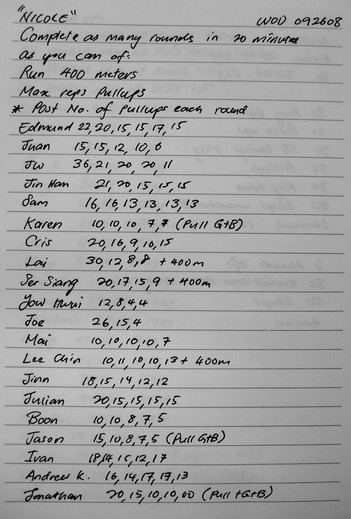 "NICOLE" WOD 092608
Complete as many rounds in 20 minutes
as you can of:
Run 400 meters
Max reps Pullups
* Post No. of Pullups each round
Edmund 22, 20, 15, 15, 17, 15
Juan 15, 15, 12, 10, 6
JW 36, 21, 20, 20, 11
Jin Han 21, 20, 15, 15, 15
Sam 16, 16, 13, 13, 13, 13
Karen 10, 10, 10, 7, 7 (Pull G+B)
Cris 20, 16, 9, 10, 15
Lai 30, 12, 8, 8 + 400m
Ser Siang 20, 17, 15, 9 + 400m
Yow Hwui 12, 8, 4, 4
Joe 26, 15, 4
Mai 10, 10, 10, 10, 7
Lee Chin 10, 11, 10, 10, 13 + 400m
Jinn 18, 15, 14, 12, 12
Julian 20, 15, 15, 15, 15
Boon 10, 10, 8, 7, 5
Jason 15, 10, 8, 7, 5 (Pull G+B)
Ivan 18, 14, 15, 12, 17
Andrew K. 16, 14, 17, 17, 13
Jonathan 20, 15, 10, 10, (Pull +G+B)